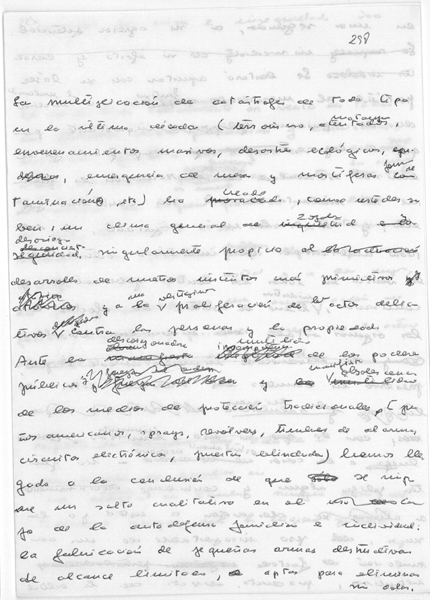 298
La multiplicación de catástrofes de todo tipo
en la última década (terrorismo, atentados, matanzas,
envenenamientos masivos, desastres ecológicos, epi-
demias, emergencia de nuevas y mortíferas formas de con-
taminación, etc) ha creado, como ustedes sa
ben, un clima general de zozobra y
desasosiego, singularmente propicio al
desarrollo de nuestros instintos más primitivos
y a la vertiginosa proliferación de los actos delic-
tivos contra las personas y la propiedad.
Ante la inutilidad de los poderes
públicos y la manifiesta obsolescencia
de los medios de protección tradicionales (pu-
ños americanos, sprays, revólveres, timbres de alarma,
circuitos electrónicos, puertas blindadas) hemos lle
gado a la conclusión de que se impo
ne un salto cualitativo en el
de la autodefensa familiar e individual:
la fabricación de pequeñas armas destructivas
de alcance limitado, aptas para eliminar
sin dolor.